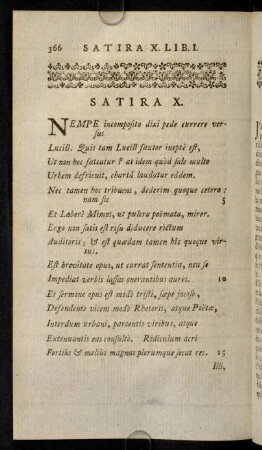 366 SATIRA X. LIB. I.
SATIRA X.
NEMPE incomposito dixi pede currere ver-
sus
Lucili. Quis tam Lucili fautor ineptè est,
Ut non hoc fateatur? at idem quòd sale multo
Urbem defricuit, chartâ laudatur eâdem.
Nec tamen hoc tribuens, dederim quoque cetera:
nam sic 5
Et Laberî Mimos, ut pulcra poëmata, mirer.
Ergo non satis est risu diducere rictum
Auditoris; & est quædam tamen hîc quoque vir-
tus.
Est brevitate opus, ut currat sententia, neu se
Impediat verbis lassas onerantibus aures. 10
Et sermone opus est modò tristi, sæpe jocoso,
Defendente vicem modò Rhetoris, atque Poëtæ,
Interdum urbani, parcentis viribus, atque
Extenuantis eas consultò. Ridiculum acri
Fortiùs & meliùs magnas plerumque secat res. 15
Illi,